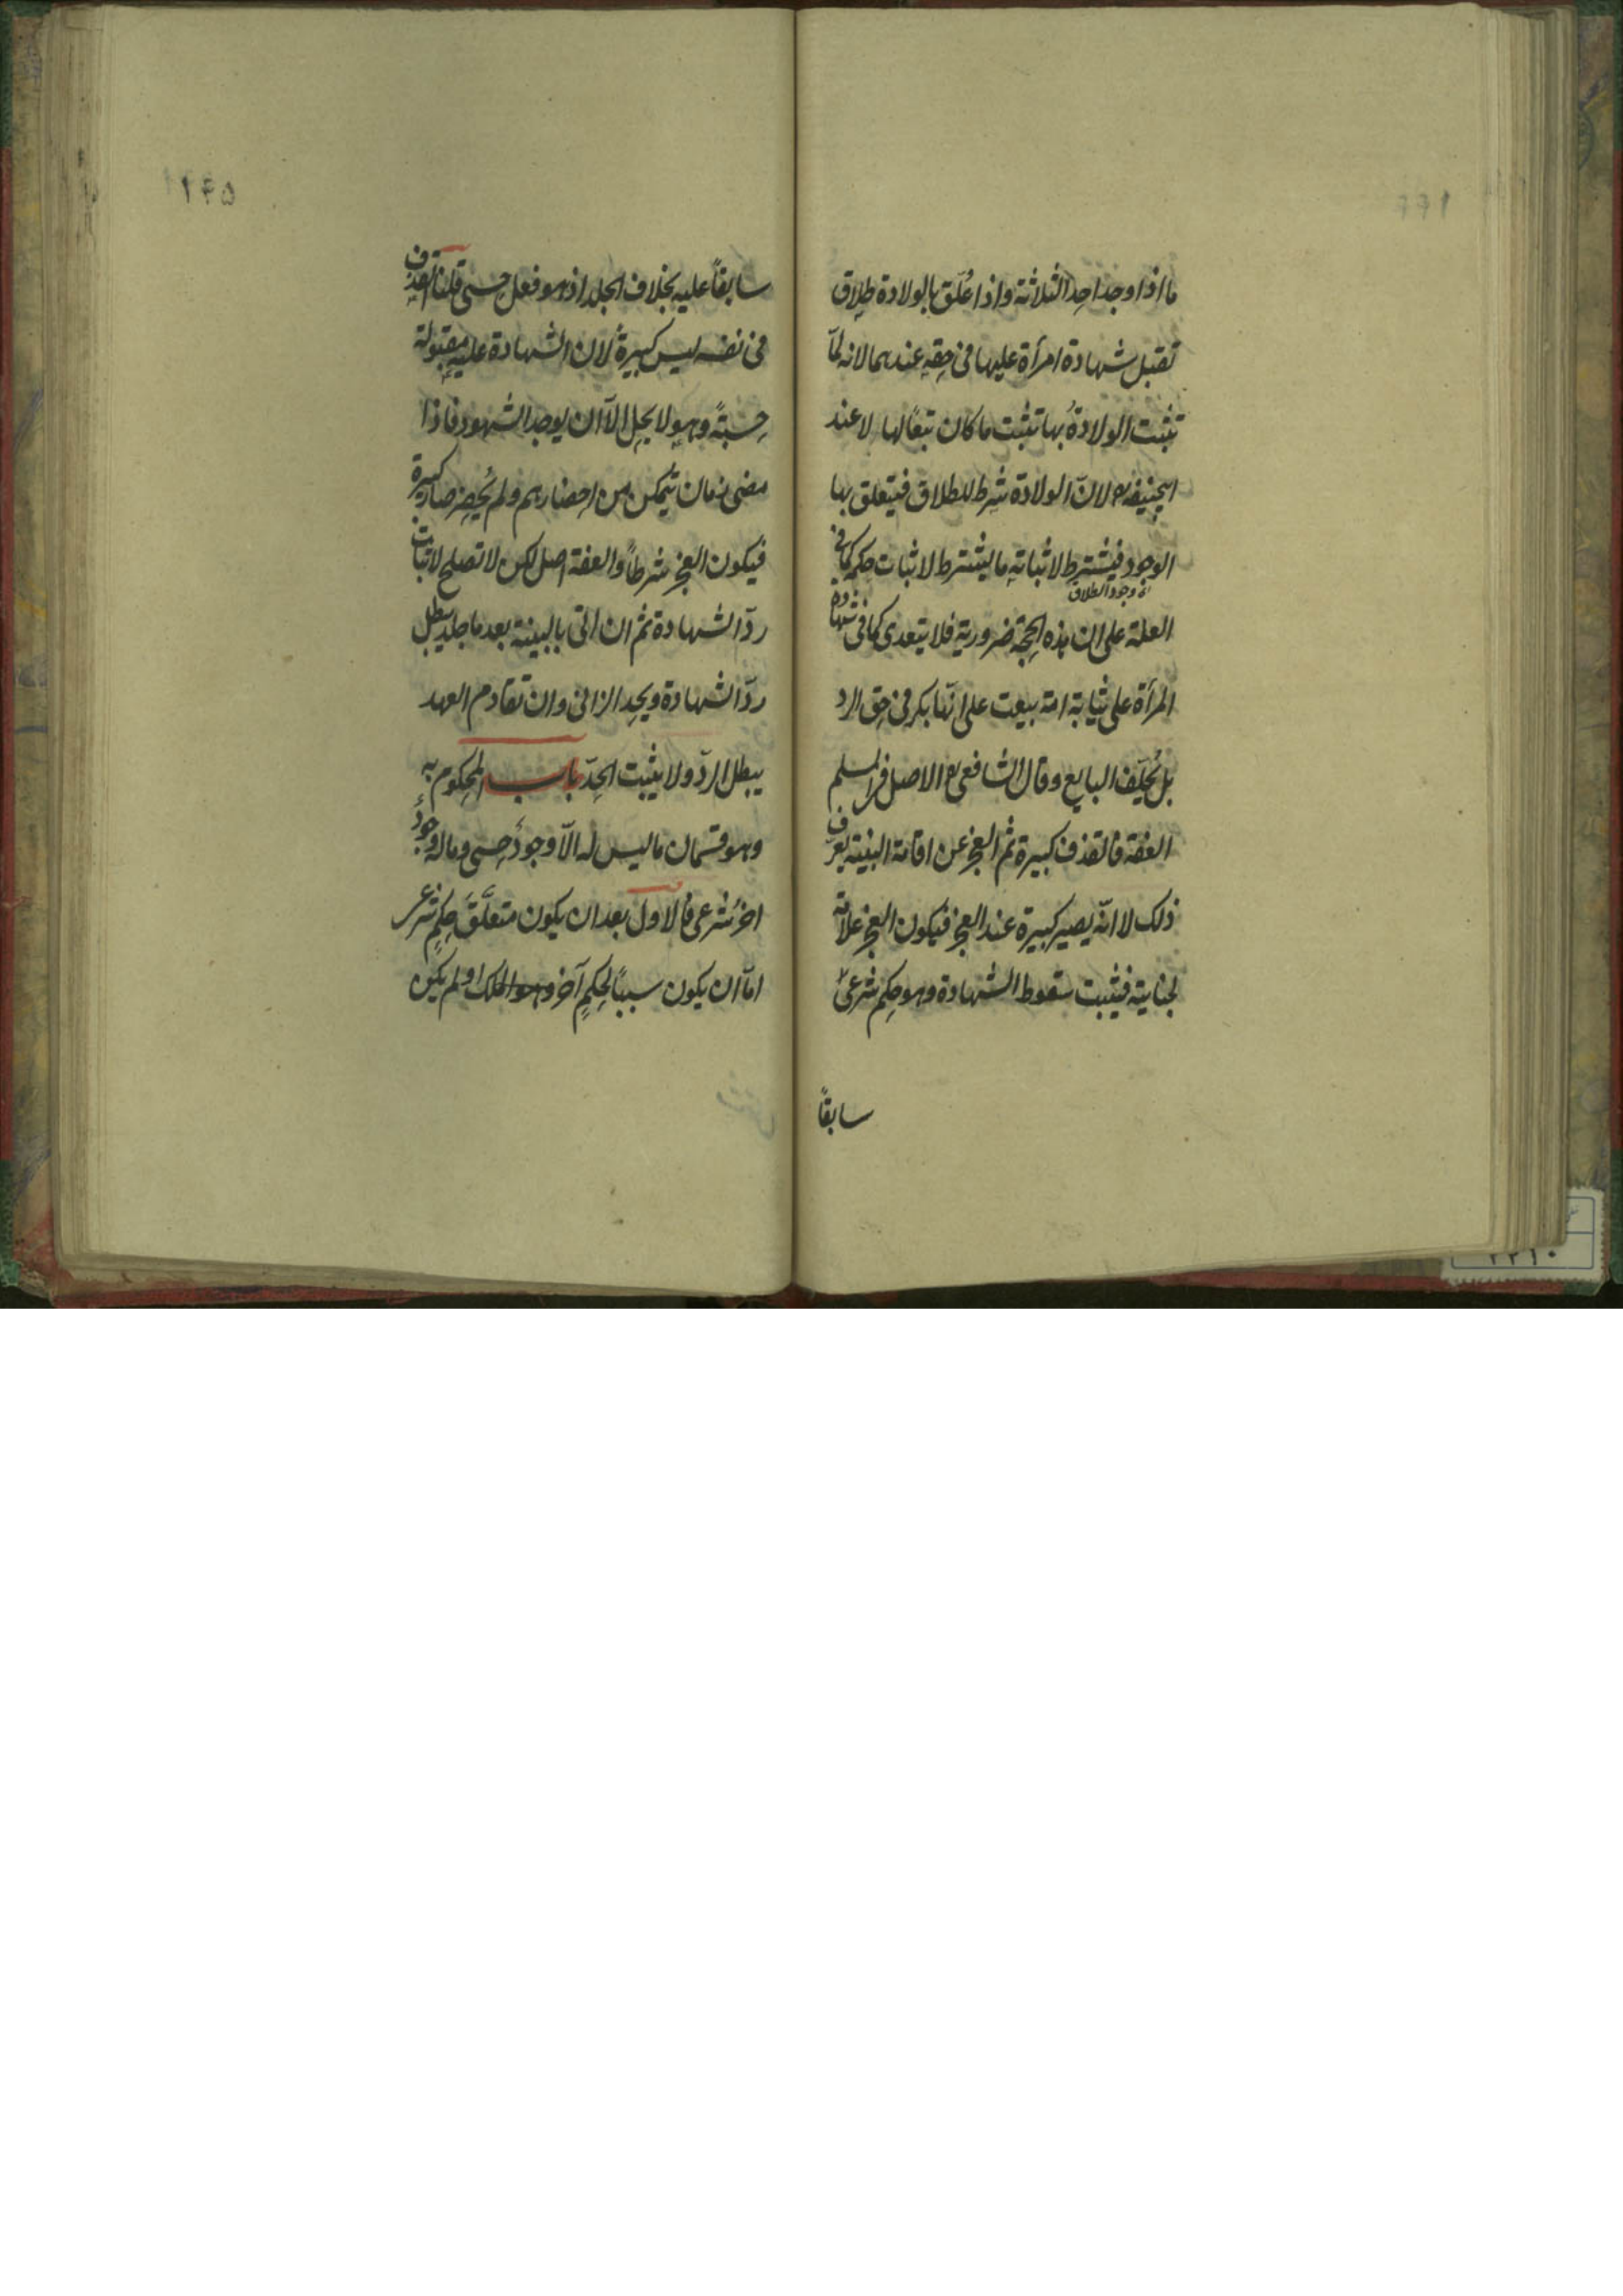 ما اذا وجد احد الثلاثة واذا عُلّق بالولادة طلاق
تقبل شهادة امرأة عليها فى حقه عندهما لانه لمّا
تثبت الولادةُ بها تثبت ما كان تبعًا لها لا عند
ابيحنيفة رح لانّ الولادة شرط للطلاق فيتعلق بها
الوجود فيشترط لاثباته ما يشترط لاثبات حكمه كما فى
اى وجود الطلاق
العلة على ان هذه الحجة ضرورية فلا يتعدى كما فى شهادة
المرأة على ثيابة امة بيعت على انّها بكر فى حق الرد
بل يُحَلّف البايع وقال الشافعى رح الاصل فى المسلم
العفة فالقذف كبيرة ثم العجز عن اقامة البينة يعرّف
ذلك لا انّه يصير كبيرة عند العجز فيكون العجز علامة
لجناية فيثبت سقوط الشهادة وهو حكم شرعىٌ
سابقاً
١٤٥
سابقاً عليه بخلاف الجلد اذ هو فعل حسى قلنا القذف
فى نفسه ليس كبيرةً لان الشهادة عليه مقبولة
حِسبةً وهو لا يحل الّا ان يوجد الشهود فاذا
مضى زمان يتمكن من احضارهم ولم يُحضِر صار كبيرة
فيكون العجز شرطاً والعفة اصل لكن لا تصلح لاثبات
ردّ الشهادة ثم ان اتى بالبينة بعد ما جلد يبطل
ردّ الشهادة ويحد الزانى وان تقادم العهد
يبطل الردّ ولا يثبت الحدّ باب المحكوم به
وهو قسمان ما ليس له الّا وجودٌ حسى وما له وجودٌ
اخرُ شرعى فالاول بعد ان يكون متعلَّقَ حكمٍ شرعى
امّا ان يكون سببًا لحكمٍ آخر وهو الملك او لم يكن